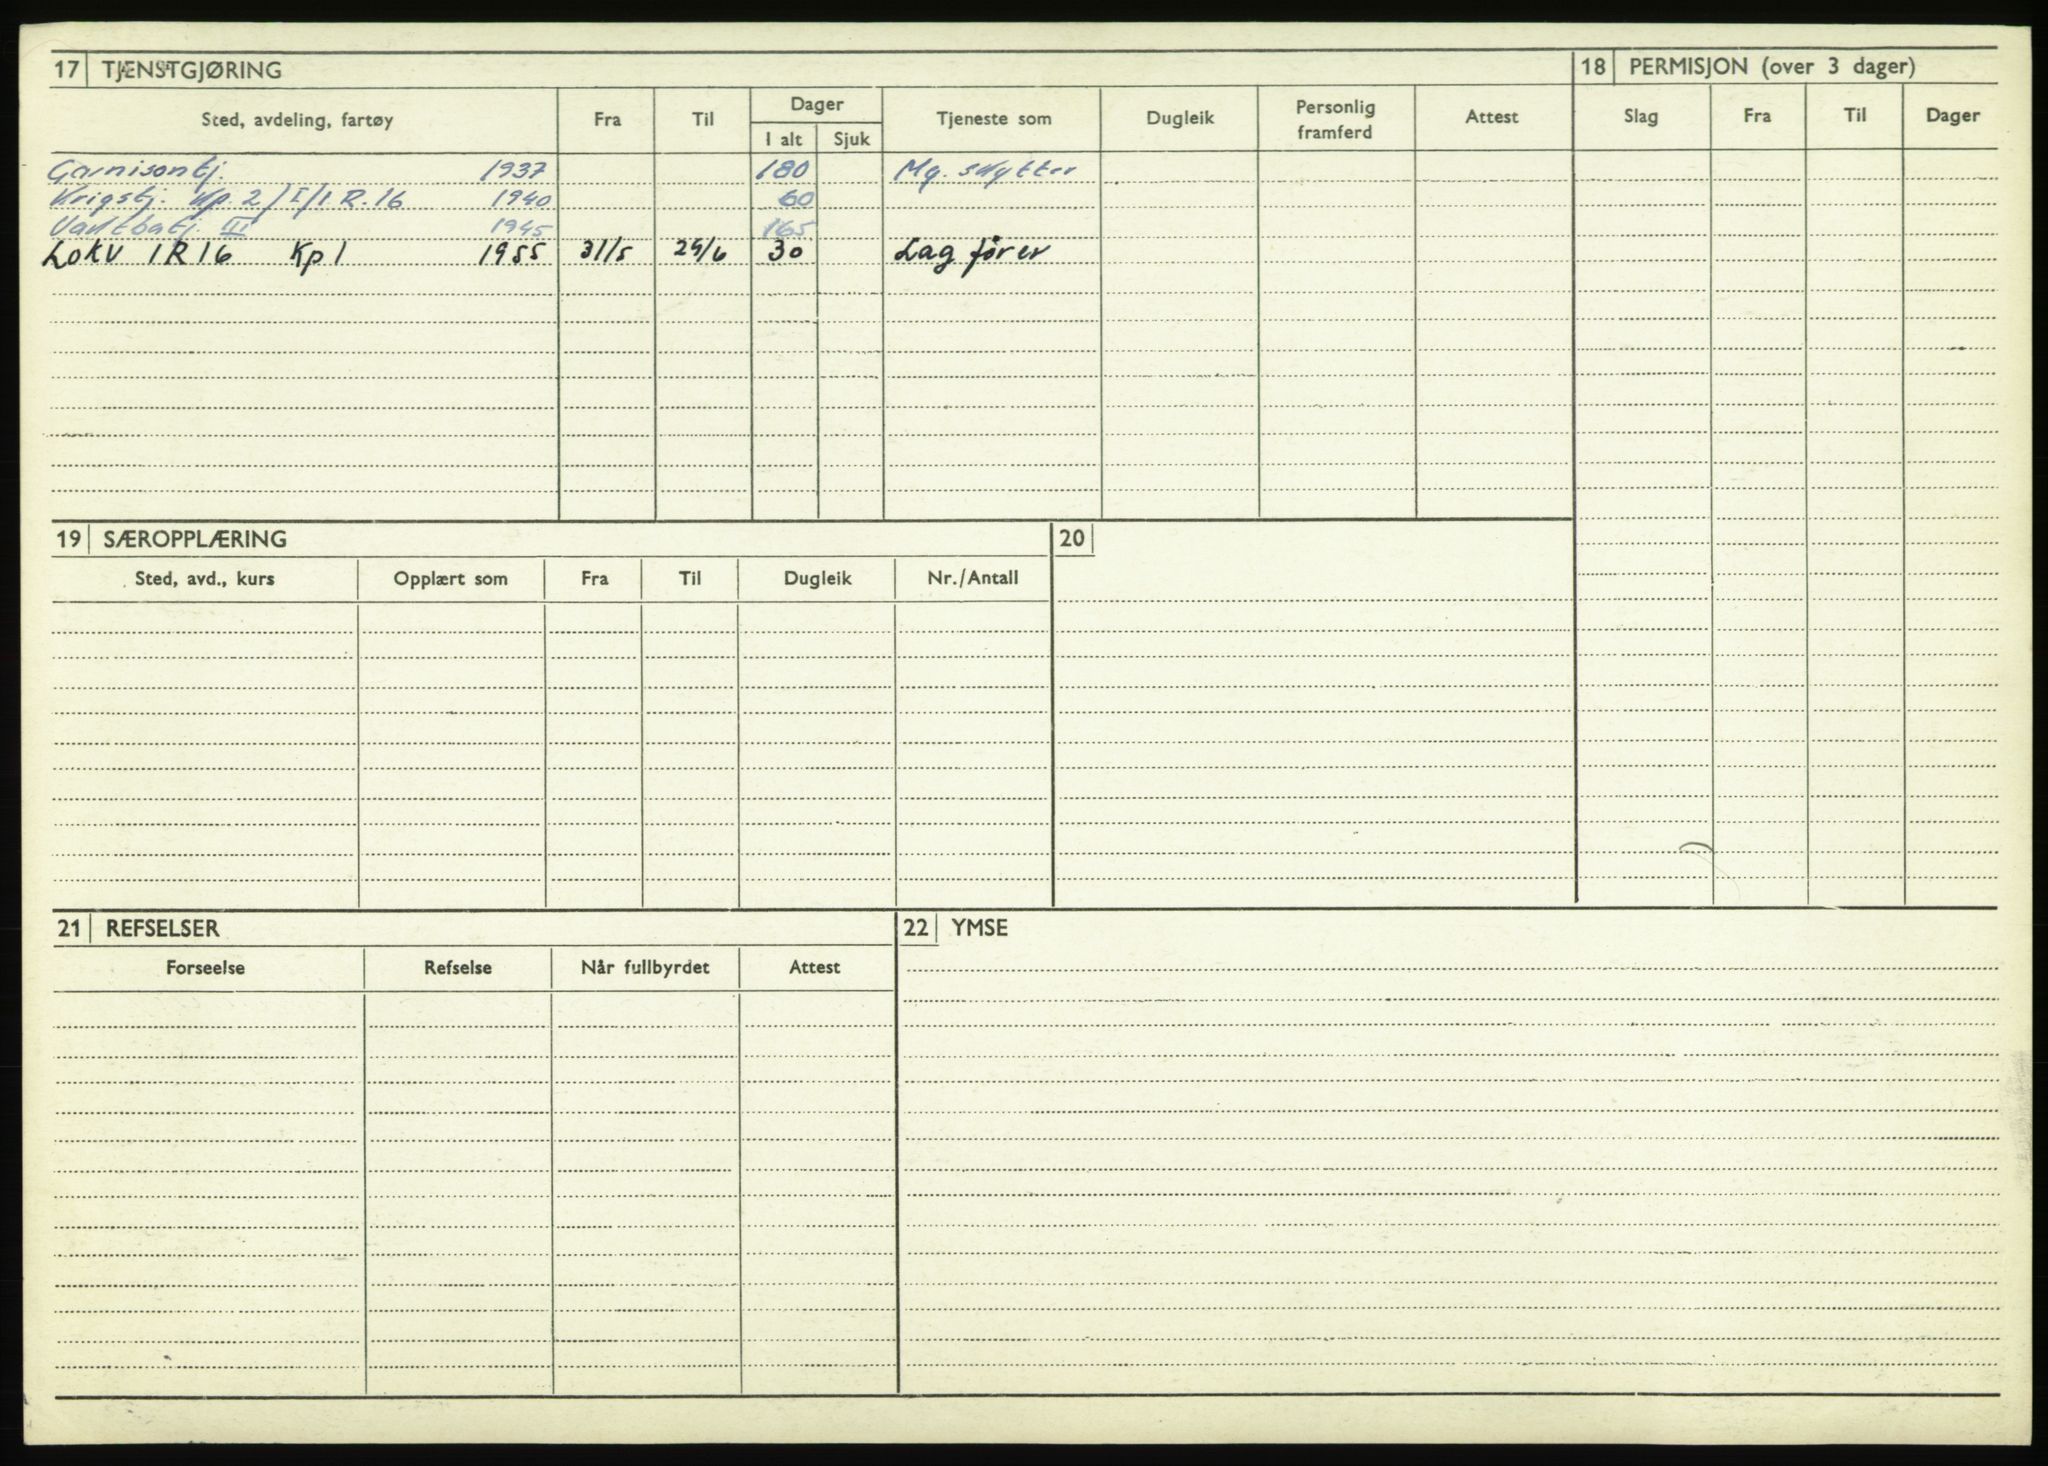 17 TJENSTGJØRING
18 PERMISJON (over 3 dager)
Sted, avdeling, fartøy Fra Til Dager I alt Sjuk Tjeneste som Dugleik Personlig framferd Attest Slag Fra Til Dager
Garnisontj. 1937 180 Mg. skytter
Krigstj. Kp. 2/I/I R. 16 1940 60
Vaktbatj. III 1945 165
Lokv IR 16 Kp 1 1955 31/5 29/6 30 Lag fører
19 SÆROPPLÆRING
20
Sted, avd., kurs Opplært som Fra Til Dugleik Nr./Antall
21 REFSELSER
22 YMSE
Forseelse Refselse Når fullbyrdet Attest